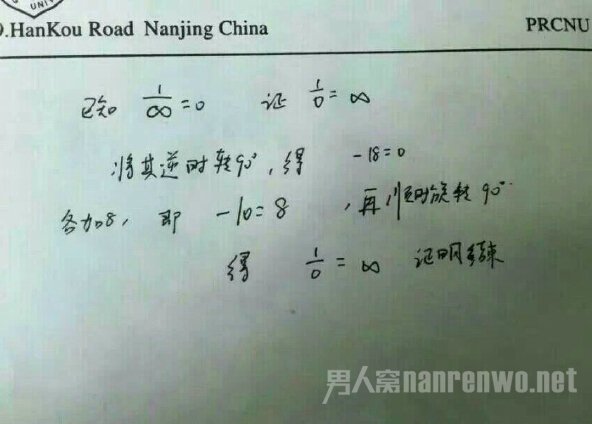 UNIV
9.HanKou Road Nanjing China PRCNU
已知 1/∞ = 0 证 1/0 = ∞
将其逆时转90°,得 -18=0
各加8, 即 -10=8 ,再顺时旋转90°
得 1/0 = ∞ 证明结束
男人窝nanrenwo.net